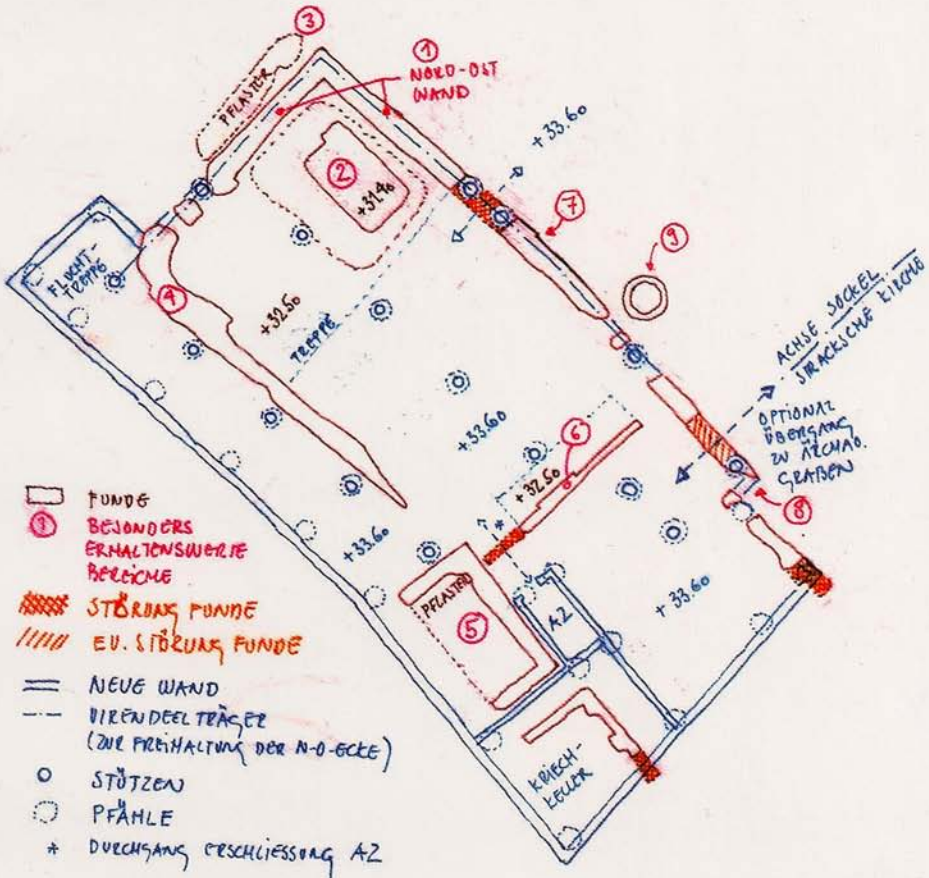 3
PFLASTER
1
NORD-OST
WAND
+33.60
2
+31.40
7
9
FLUCHT-
TREPPE
4
+32.50
TREPPE
ACHSE SOCKEL
STRACKSCHE KIRCHE
OPTIONAL
ÜBERGANG
ZU ARCHÄO.
GRABEN
+33.60
6
+32.50
8
+33.60
*
PFLASTER
5
AZ
+33.60
KRIECH-
KELLER
FUNDE
BESONDERS
ERHALTENSWERTE
BEREICHE
STÖRUNG FUNDE
EV. STÖRUNG FUNDE
NEUE WAND
VIRENDEEL TRÄGER
(ZUR FREIHALTUNG DER N-O-ECKE)
STÜTZEN
PFÄHLE
* DURCHGANG ERSCHLIESSUNG AZ